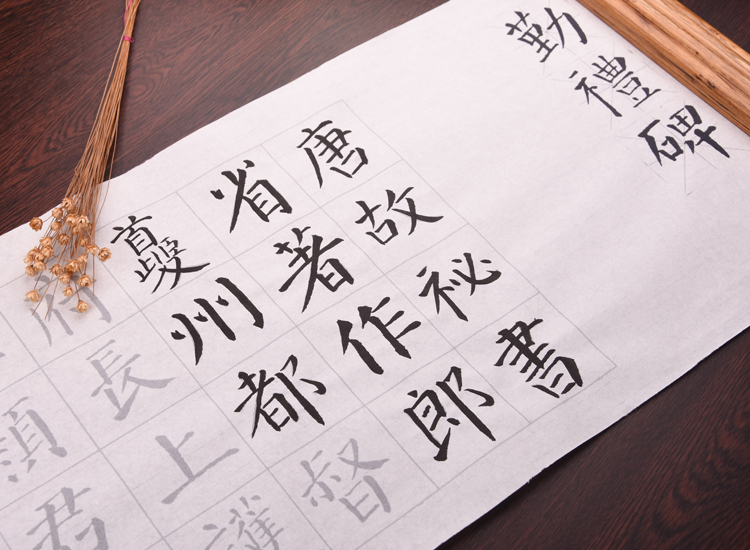 勤禮碑
唐故祕書
省著作郎
夔州都督
府長上護
顏君